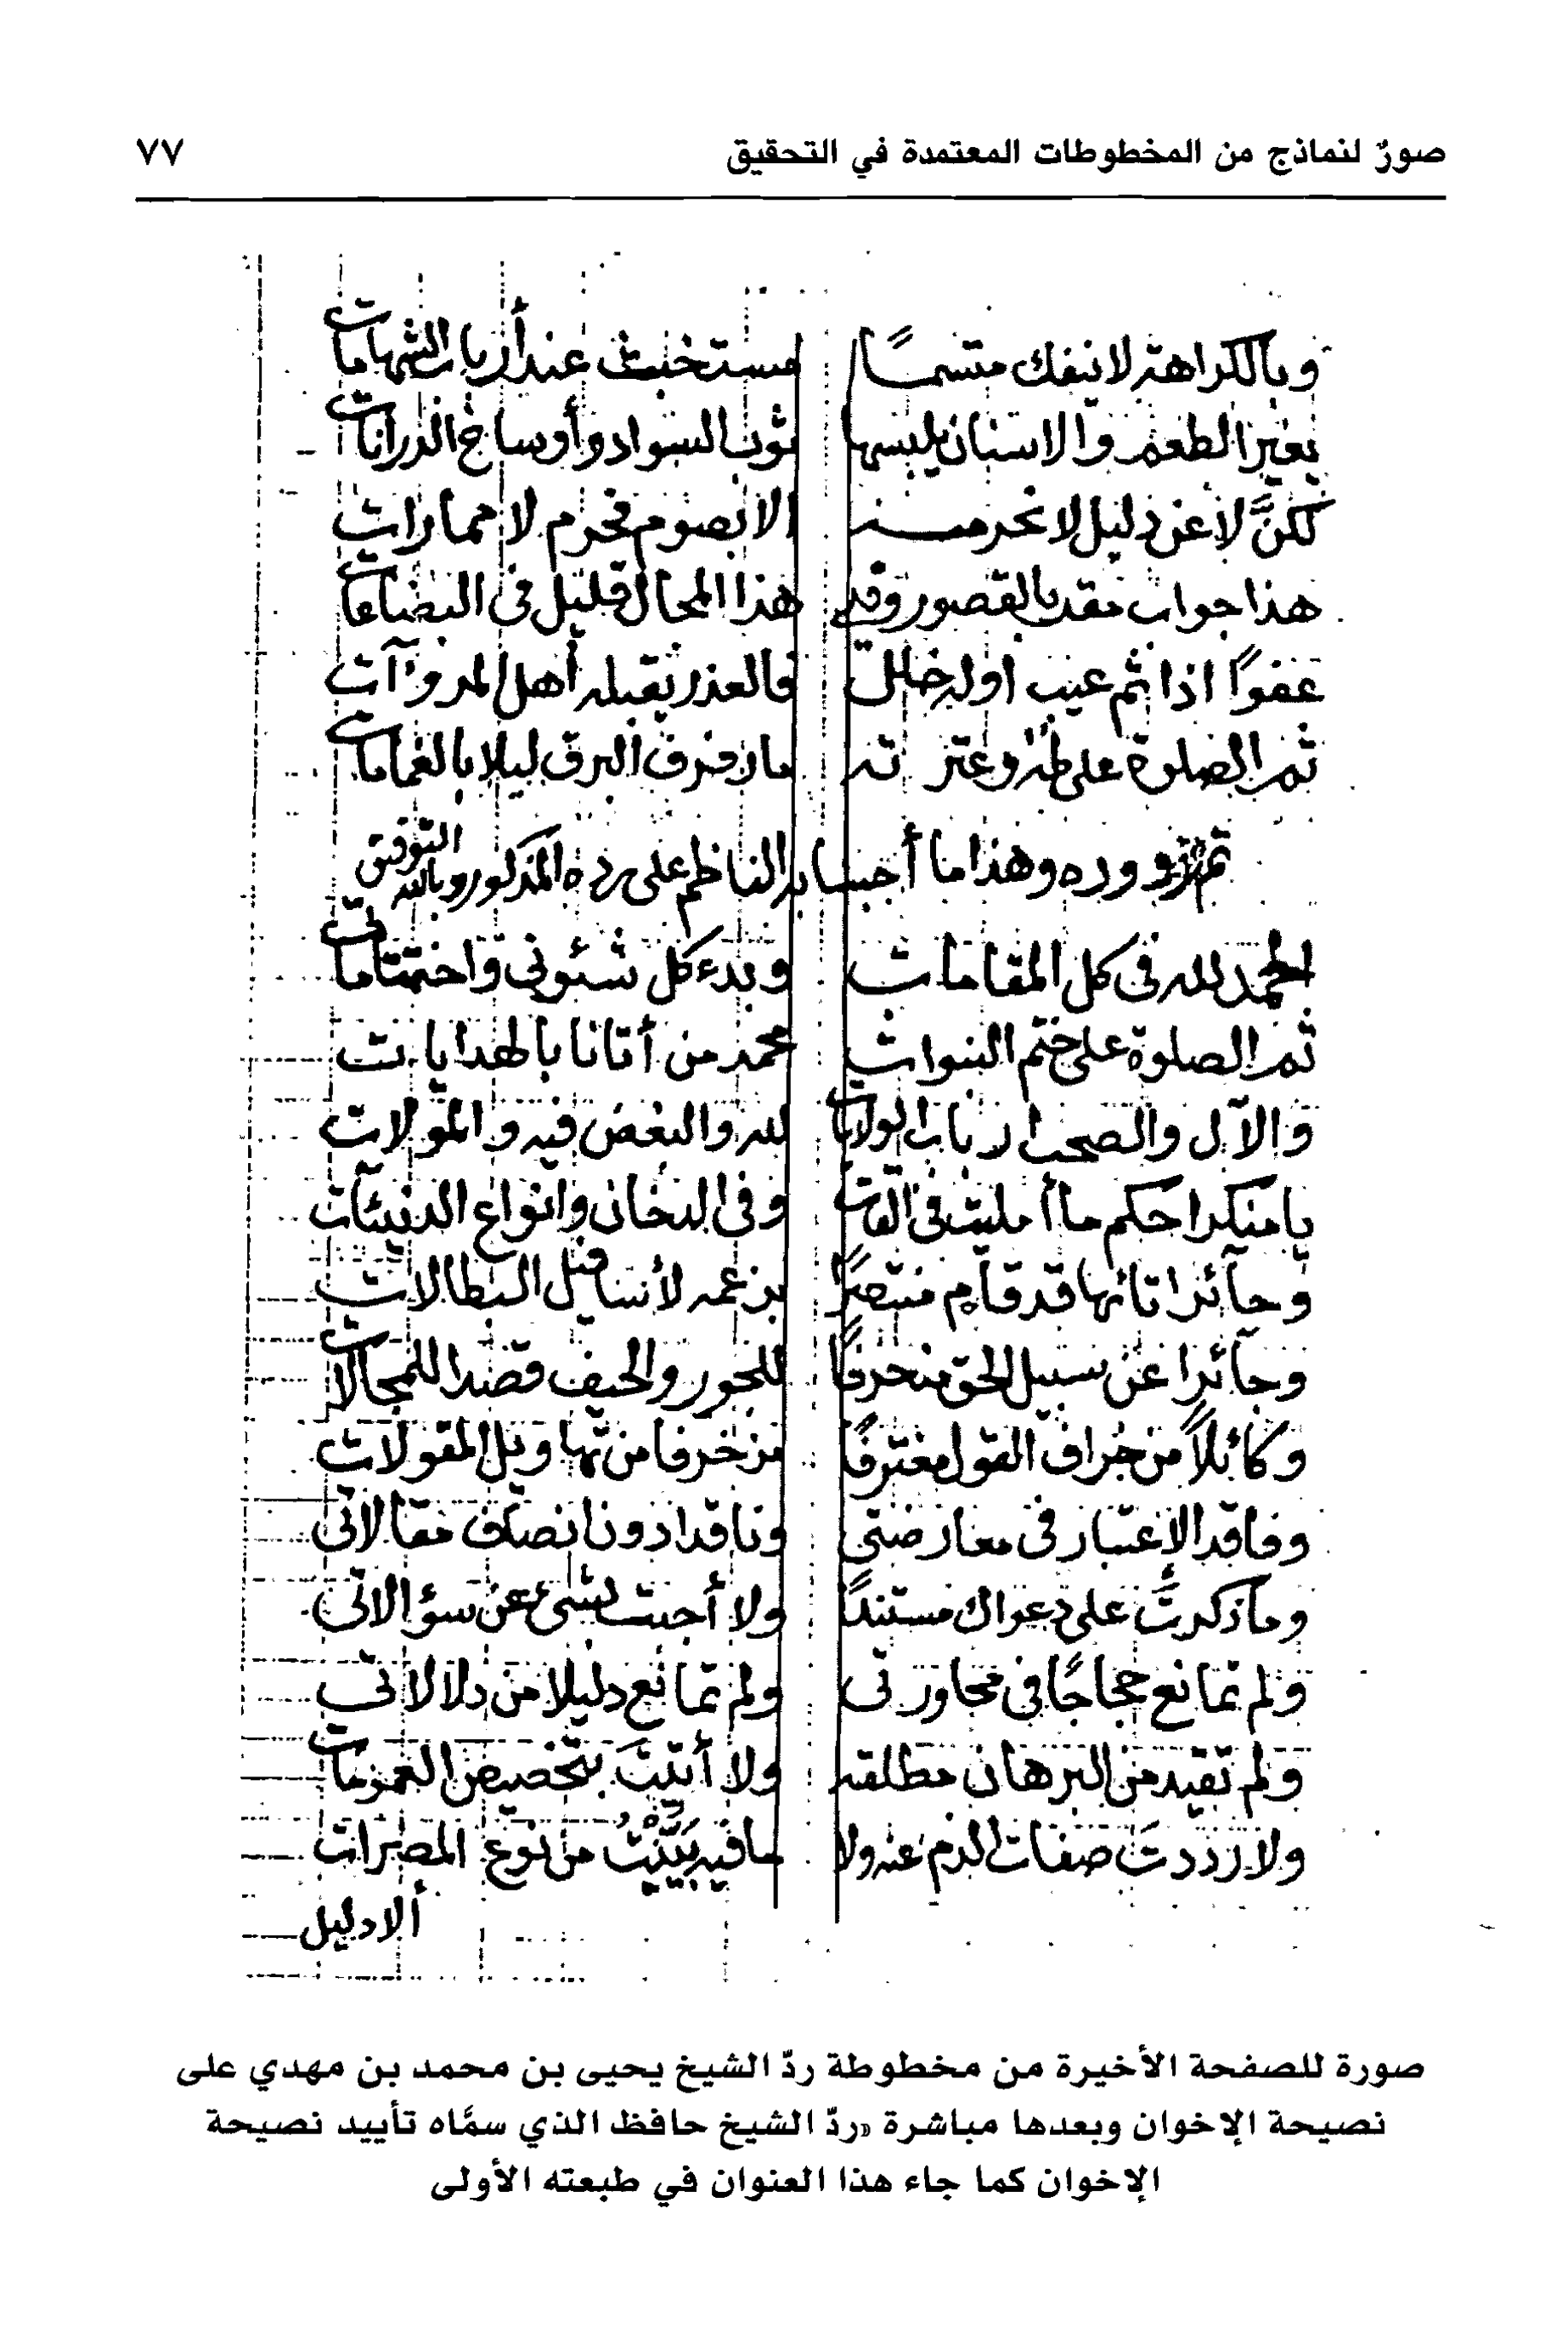 صورٌ لنماذج من المخطوطات المعتمدة في التحقيق ٧٧
وبالكراهة لا ينفك متسمًا مستخبث عند أرباب الشهامات
يغير الطعم والاسنان يلبسها ثوب السواد وأوساخ الدرانات
لكنَّ لا عن دليل لا نحرمه الا بصوم فحرم لا ممارات
هذا جواب مقر بالقصور وفي هذا المجال قليل في البضاعات
عفوًا اذا ثم عيب اوله خلل فالعذر يقبله أهل المروآت
ثم الصلوة على طه وعترته مارفرف البرق ليلا بالغمامات
وهذا ما أجبنا به الناظم على رده المذكور وبالله التوفيق
الحمد لله في كل المقامات وبدء كل شئوني واختتاماتي
ثم الصلوة على ختم النبوات محمد من أتانا بالهدايات
والآل والصحب ارباب الولايات لله والبغض فيه والموالات
يا منكرا حكم ما أمليت في القات وفي الدخان وانواع الدنيئات
وحآئرا تائها قد قام منتصرًا بزعمه لأساقل البطالات
وجآئرا عن سبيل الحق منحرفًا للجور والحيف قصدا للمجالات
وكائلًا من جزاف القول مغترفًا مزخرفا من تهاويل المقولات
وفاقد الإعتبار في معارضتي وناقدا دونا نصاف مقالاتي
وما ذكرتَ على دعواك مستندًا ولا أجبت بشيء عن سؤالاتي
ولم تمانع حجاجًا في محاورتي ولم تمانع دليلا من دلالاتي
ولم تقيد من البرهان مطلقه ولا أتيتَ بتخصيص العمومات
ولا رددتَ صفات الذم عنه ولا ما فيه بَيَّنْتُ من نوع المضرات
ألا دليل
صورة للصفحة الأخيرة من مخطوطة ردّ الشيخ يحيى بن محمد بن مهدي على
نصيحة الإخوان وبعدها مباشرة «ردّ الشيخ حافظ الذي سمَّاه تأييد نصيحة
الإخوان كما جاء هذا العنوان في طبعته الأولى